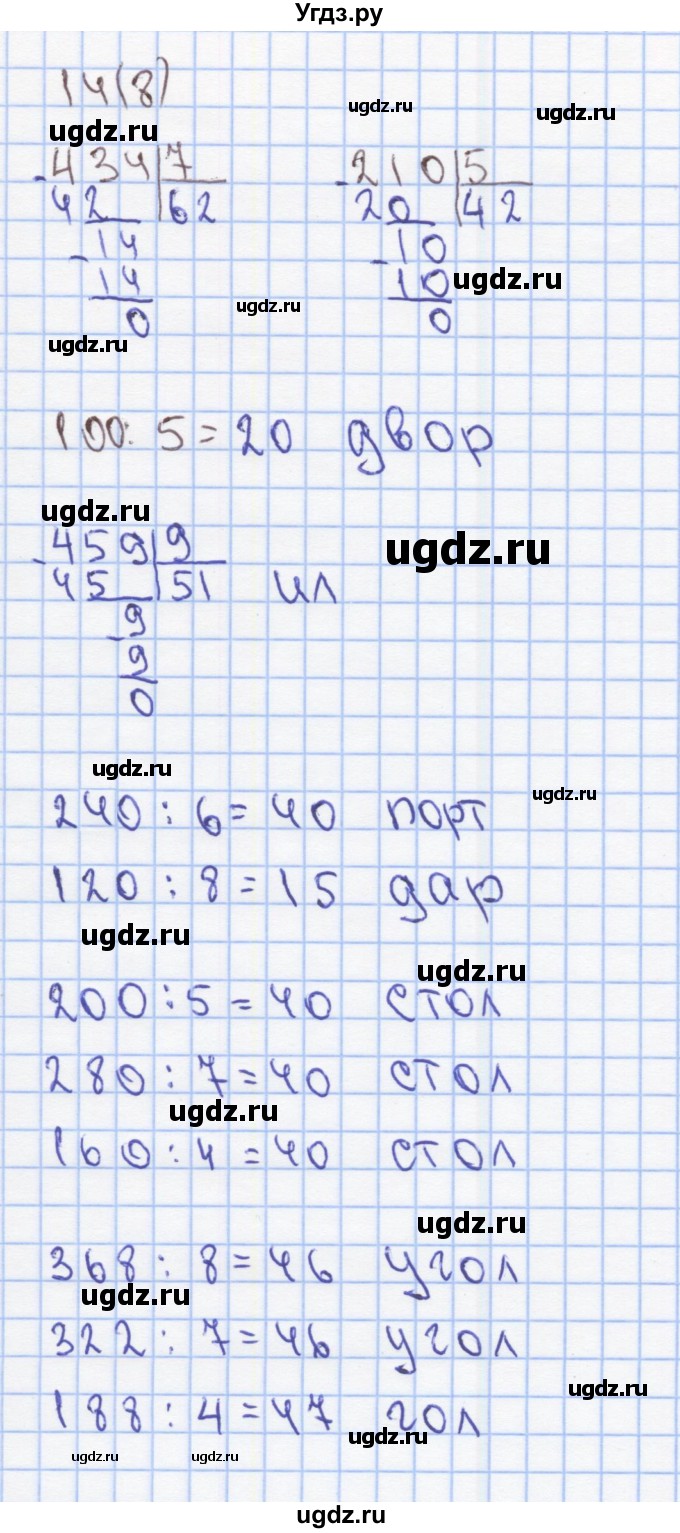 Угдз.ру
14(8)
ugdz.ru ugdz.ru
ugdz.ru
- 434 | 7 - 210 | 5
42 | 62 20 | 42
- 14 - 10
14 10 ugdz.ru
0 ugdz.ru 0
ugdz.ru
100 : 5 = 20 двор
ugdz.ru
- 459 | 9 ugdz.ru
45 | 51 ил
- 9
9
0
ugdz.ru
ugdz.ru
240 : 6 = 40 порт
120 : 8 = 15 дар
ugdz.ru
ugdz.ru
200 : 5 = 40 стол
280 : 7 = 40 стол
ugdz.ru
160 : 4 = 40 стол
ugdz.ru
368 : 8 = 46 угол
ugdz.ru
322 : 7 = 46 угол
ugdz.ru
188 : 4 = 47 гол
ugdz.ru
ugdz.ru ugdz.ru
ugdz.ru